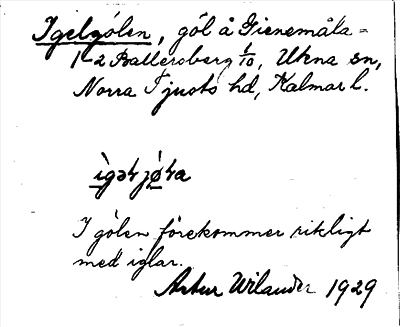 Igelgölen, göl å Gienemåla =
1-2 Ballersberg 1/10, Ukna sn,
Norra Tjusts hd, Kalmar l.
ìgəɫjø̀ɫa
I gölen förekommer rikligt
med iglar.
Artur Wilander 1929